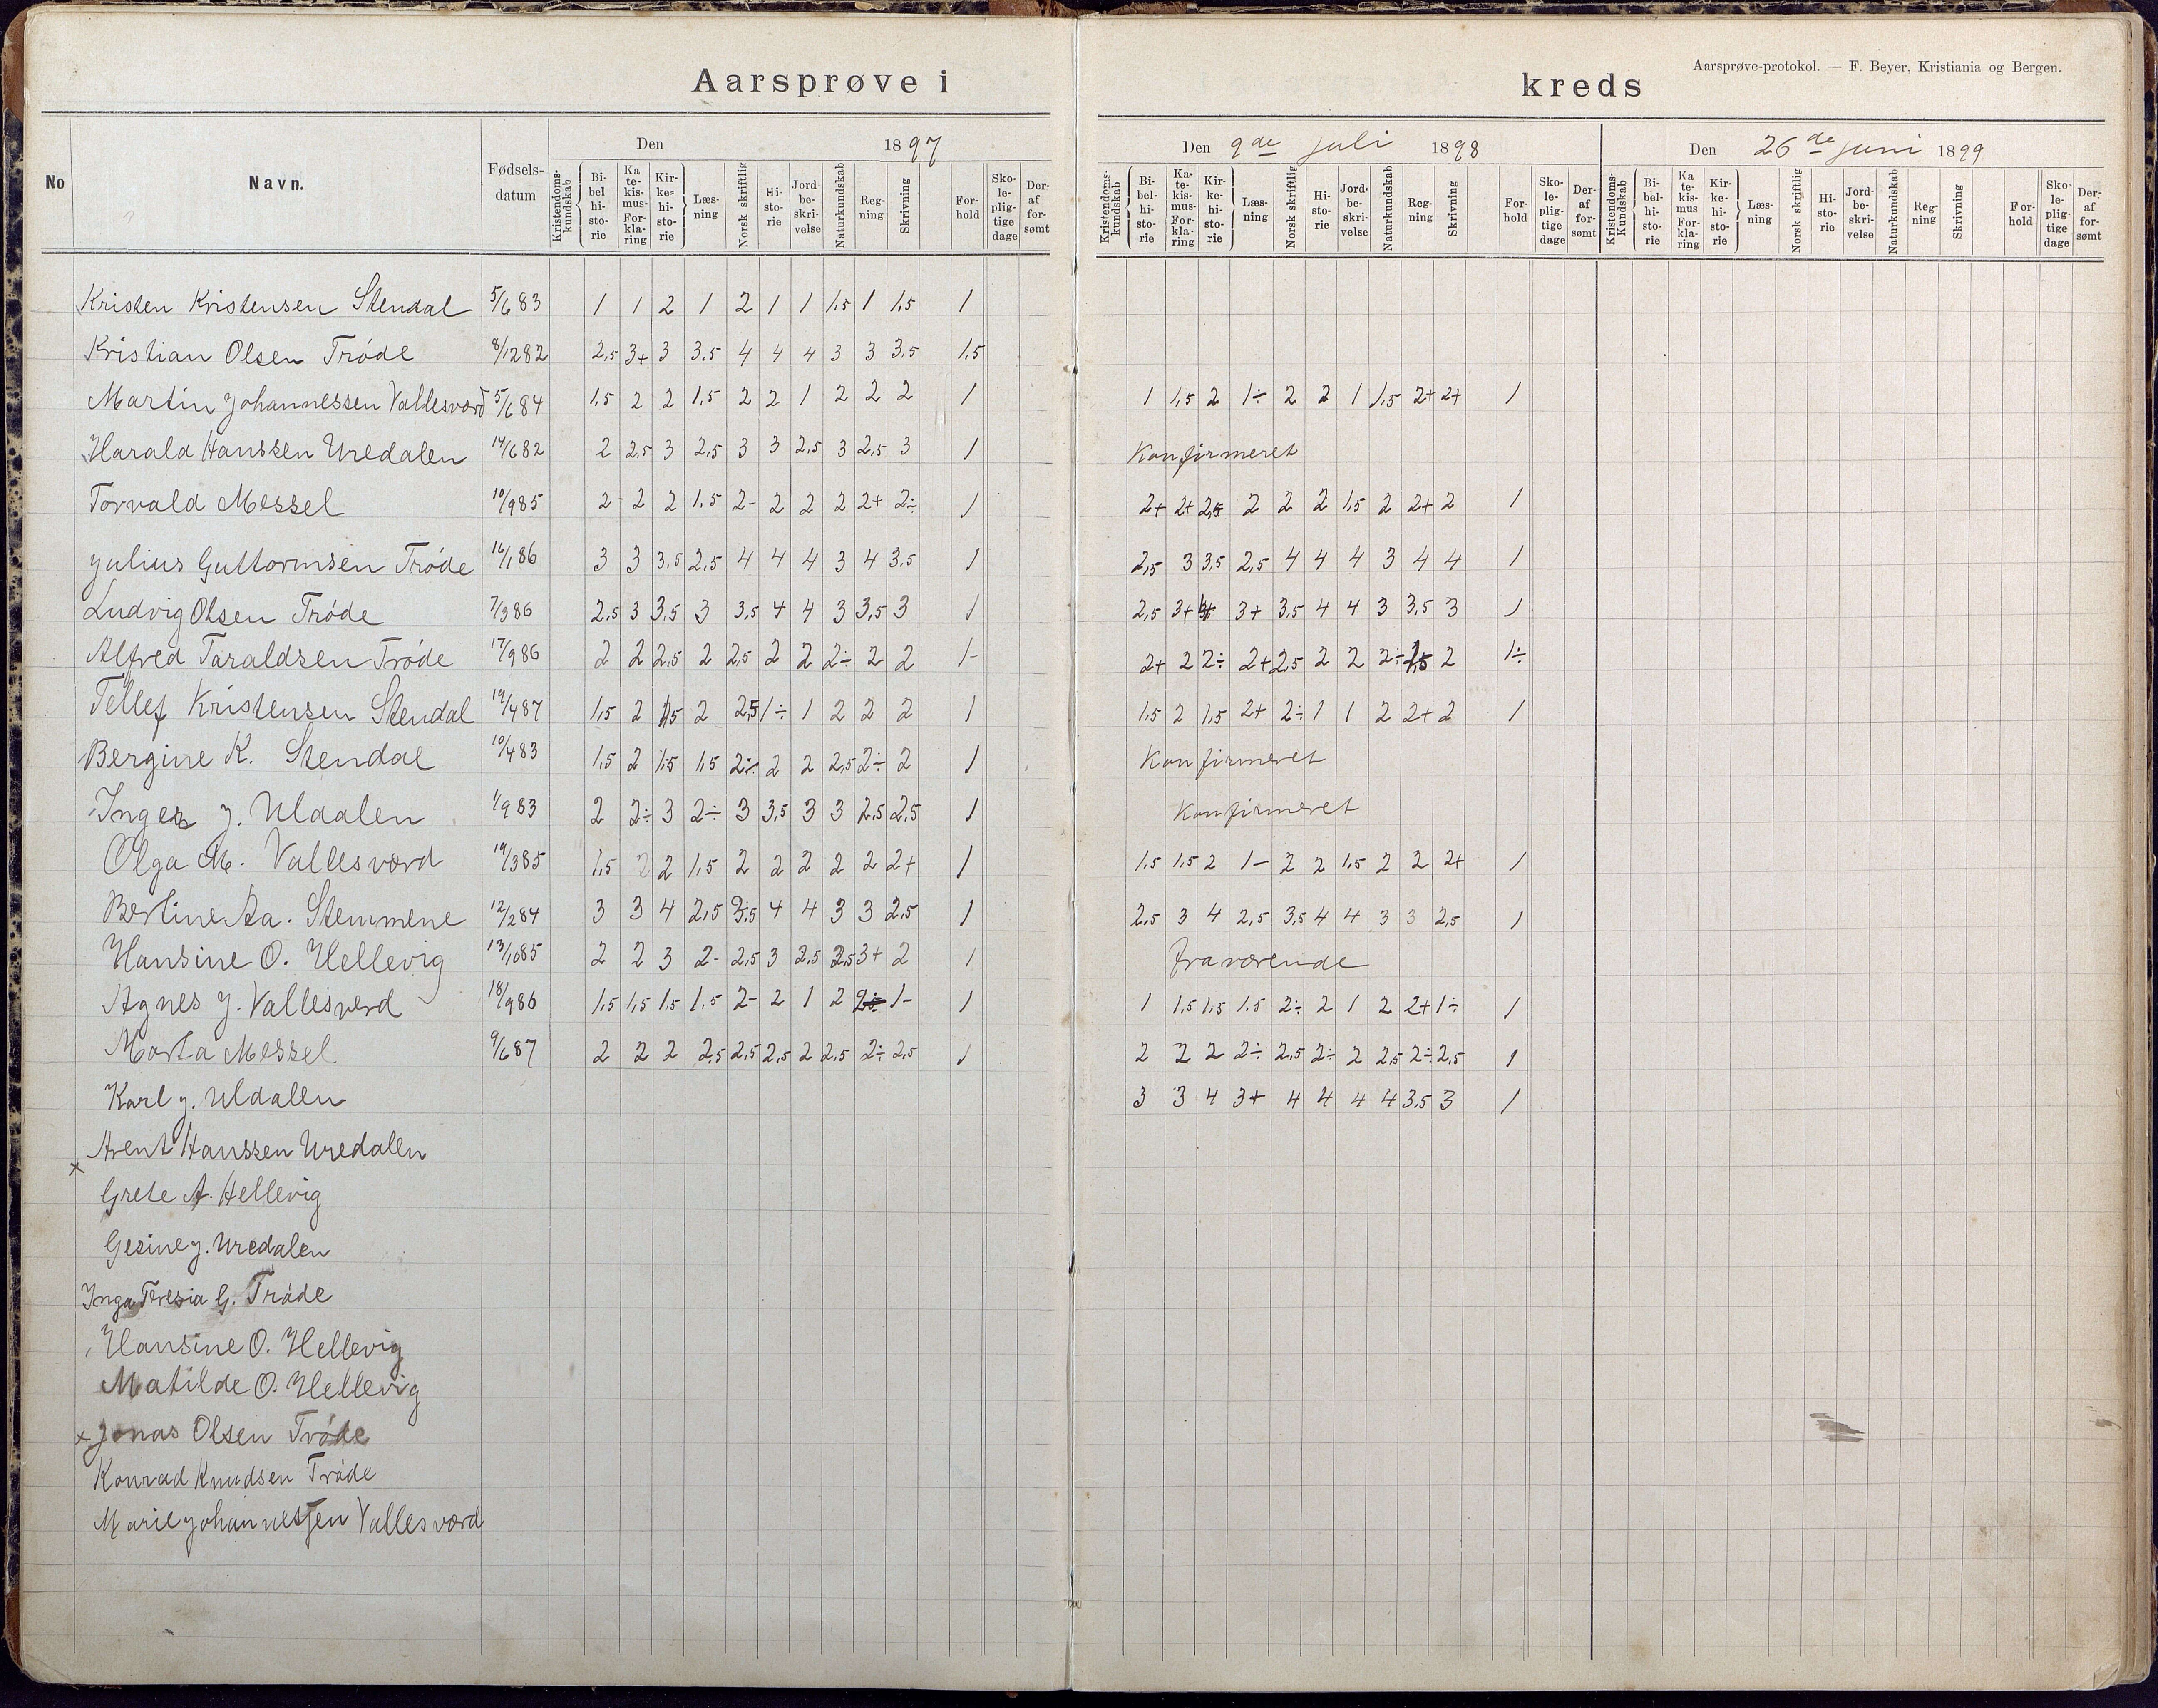 Aarsprøve-protokol. — F. Beyer, Kristiania og Bergen.
Aarsprøve i kreds
No Navn. Fødsels-datum Den 1897 Den 9de juli 1898 Den 26de juni 1899
Kristendoms-kundskab Bibelhistorie Katekismus-Forklaring Kirkehistorie Læsning Norsk skriftlig Historie Jordbeskrivelse Naturkundskab Regning Skrivning Forhold Skolepligtige dage Deraf forsømt
Kristendoms-kundskab Bibel-historie Katekismus-Forklaring Kirkehistorie Læsning Norsk skriftlig Historie Jordbeskrivelse Naturkundskab Regning Skrivning Forhold Skolepligtige dage Deraf forsømt
Kristendoms-Kundskab Bibelhistorie Katekismus Forklaring Kirkehistorie Læsning Norsk skriftlig Historie Jordbeskrivelse Naturkundskab Regning Skrivning Forhold Skolepligtige dage Deraf forsømt
Kristen Kristensen Stendal 5/6 83 1 1 2 1 2 1 1 1,5 1 1,5 1
Kristian Olsen Tróde 8/12 82 2,5 3+ 3 3,5 4 4 4 3 3 3,5 1,5
Martin Johannessen Vallesværd 5/6 84 1,5 2 2 1,5 2 2 1 2 2 2 1 1 1,5 2 1÷ 2 2 1 1,5 2+ 2+ 1
Harald Hanssen Uredalen 14/6 82 2 2,5 3 2,5 3 3 2,5 3 2,5 3 1 Konfirmeret
Torvald Messel 10/9 85 2- 2 2 1,5 2- 2 2 2 2+ 2÷ 1 2+ 2+ 2,5 2 2 2 1,5 2 2+ 2 1
Julius Guttormsen Tróde 16/1 86 3 3 3,5 2,5 4 4 4 3 4 3,5 1 2,5 3 3,5 2,5 4 4 4 3 4 4 1
Ludvig Olsen Tróde 7/3 86 2,5 3 3,5 3 3,5 4 4 3 3,5 3 1 2,5 3+ 4 3+ 3,5 4 4 3 3,5 3 1
Alfred Taraldsen Tróde 17/9 86 2 2 2,5 2 2,5 2 2 2÷ 2 2 1- 2+ 2 2÷ 2+ 2,5 2 2 2÷ 2,5 2 1÷
Tellef Kristensen Stendal 19/4 87 1,5 2 1,5 2 2,5 1÷ 1 2 2 2 1 1,5 2 1,5 2+ 2÷ 1 1 2 2+ 2 1
Bergine K. Stendal 10/4 83 1,5 2 1,5 1,5 2÷ 2 2 2,5 2÷ 2 1 Konfirmeret
Inger J. Uldalen 1/9 83 2 2÷ 3 2÷ 3 3,5 3 3 2,5 2,5 1 Konfirmeret
Olga M. Vallesværd 19/3 85 1,5 2 2 1,5 2 2 2 2 2 2+ 1 1,5 1,5 2 1- 2 2 1,5 2 2 2+ 1
Bertine Aa. Stemmene 12/2 84 3 3 4 2,5 3,5 4 4 3 3 2,5 1 2,5 3 4 2,5 3,5 4 4 3 3 2,5 1
Hansine O. Hellevig 13/10 85 2 2 3 2- 2,5 3 2,5 2,5 3+ 2 1 fraværende
Agnes J. Vallesverd 18/9 86 1,5 1,5 1,5 1,5 2- 2 1 2 2÷ 1- 1 1 1,5 1,5 1,5 2÷ 2 1 2 2+ 1÷ 1
Marta Messel 9/6 87 2 2 2 2,5 2,5 2,5 2 2,5 2÷ 2,5 1 2 2 2 2÷ 2,5 2÷ 2 2,5 2÷ 2,5 1
Karl J. Uldalen 3 3 4 3+ 4 4 4 4 3,5 3 1
Arent Hanssen Uredalen
x
Grete A. Hellevig
Gesine J. Uredalen
Inga Teresia G. Tróde
Hansine O. Hellevig
Matilde O. Hellevig
x Jonas Olsen Tróde
Konrad Knudsen Tróde
Marie Johannessen Vallesværd